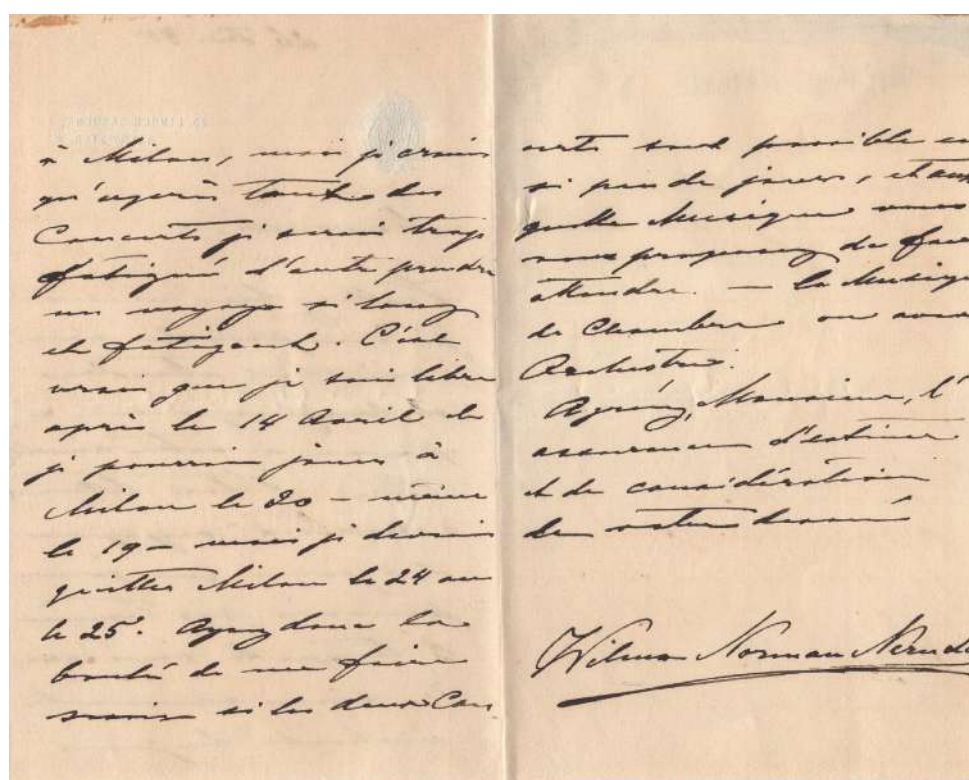 à Milan, mais je crains
qu'après tant de
Concerts je serai trop
fatigué d'entreprendre
un voyage si long
et fatigant. C'est
vrai que je suis libre
après le 14 Avril et
je pourrai jouer à
Milan le 20 – même
le 19 – mais je devrai
quitter Milan le 24 ou
le 25. Ayez donc la
bonté de me faire
savoir si les deux Con
certs sont possible en
si peu de jours, et aux
quelle Musique vous
vous proposez de faire
entendre. — la Musique
de Chambre ou avec
Orchestre.
Agréez, Monsieur, l'
assurance d'estime
et de considération
de votre dévoué
Wilma Norman Neruda